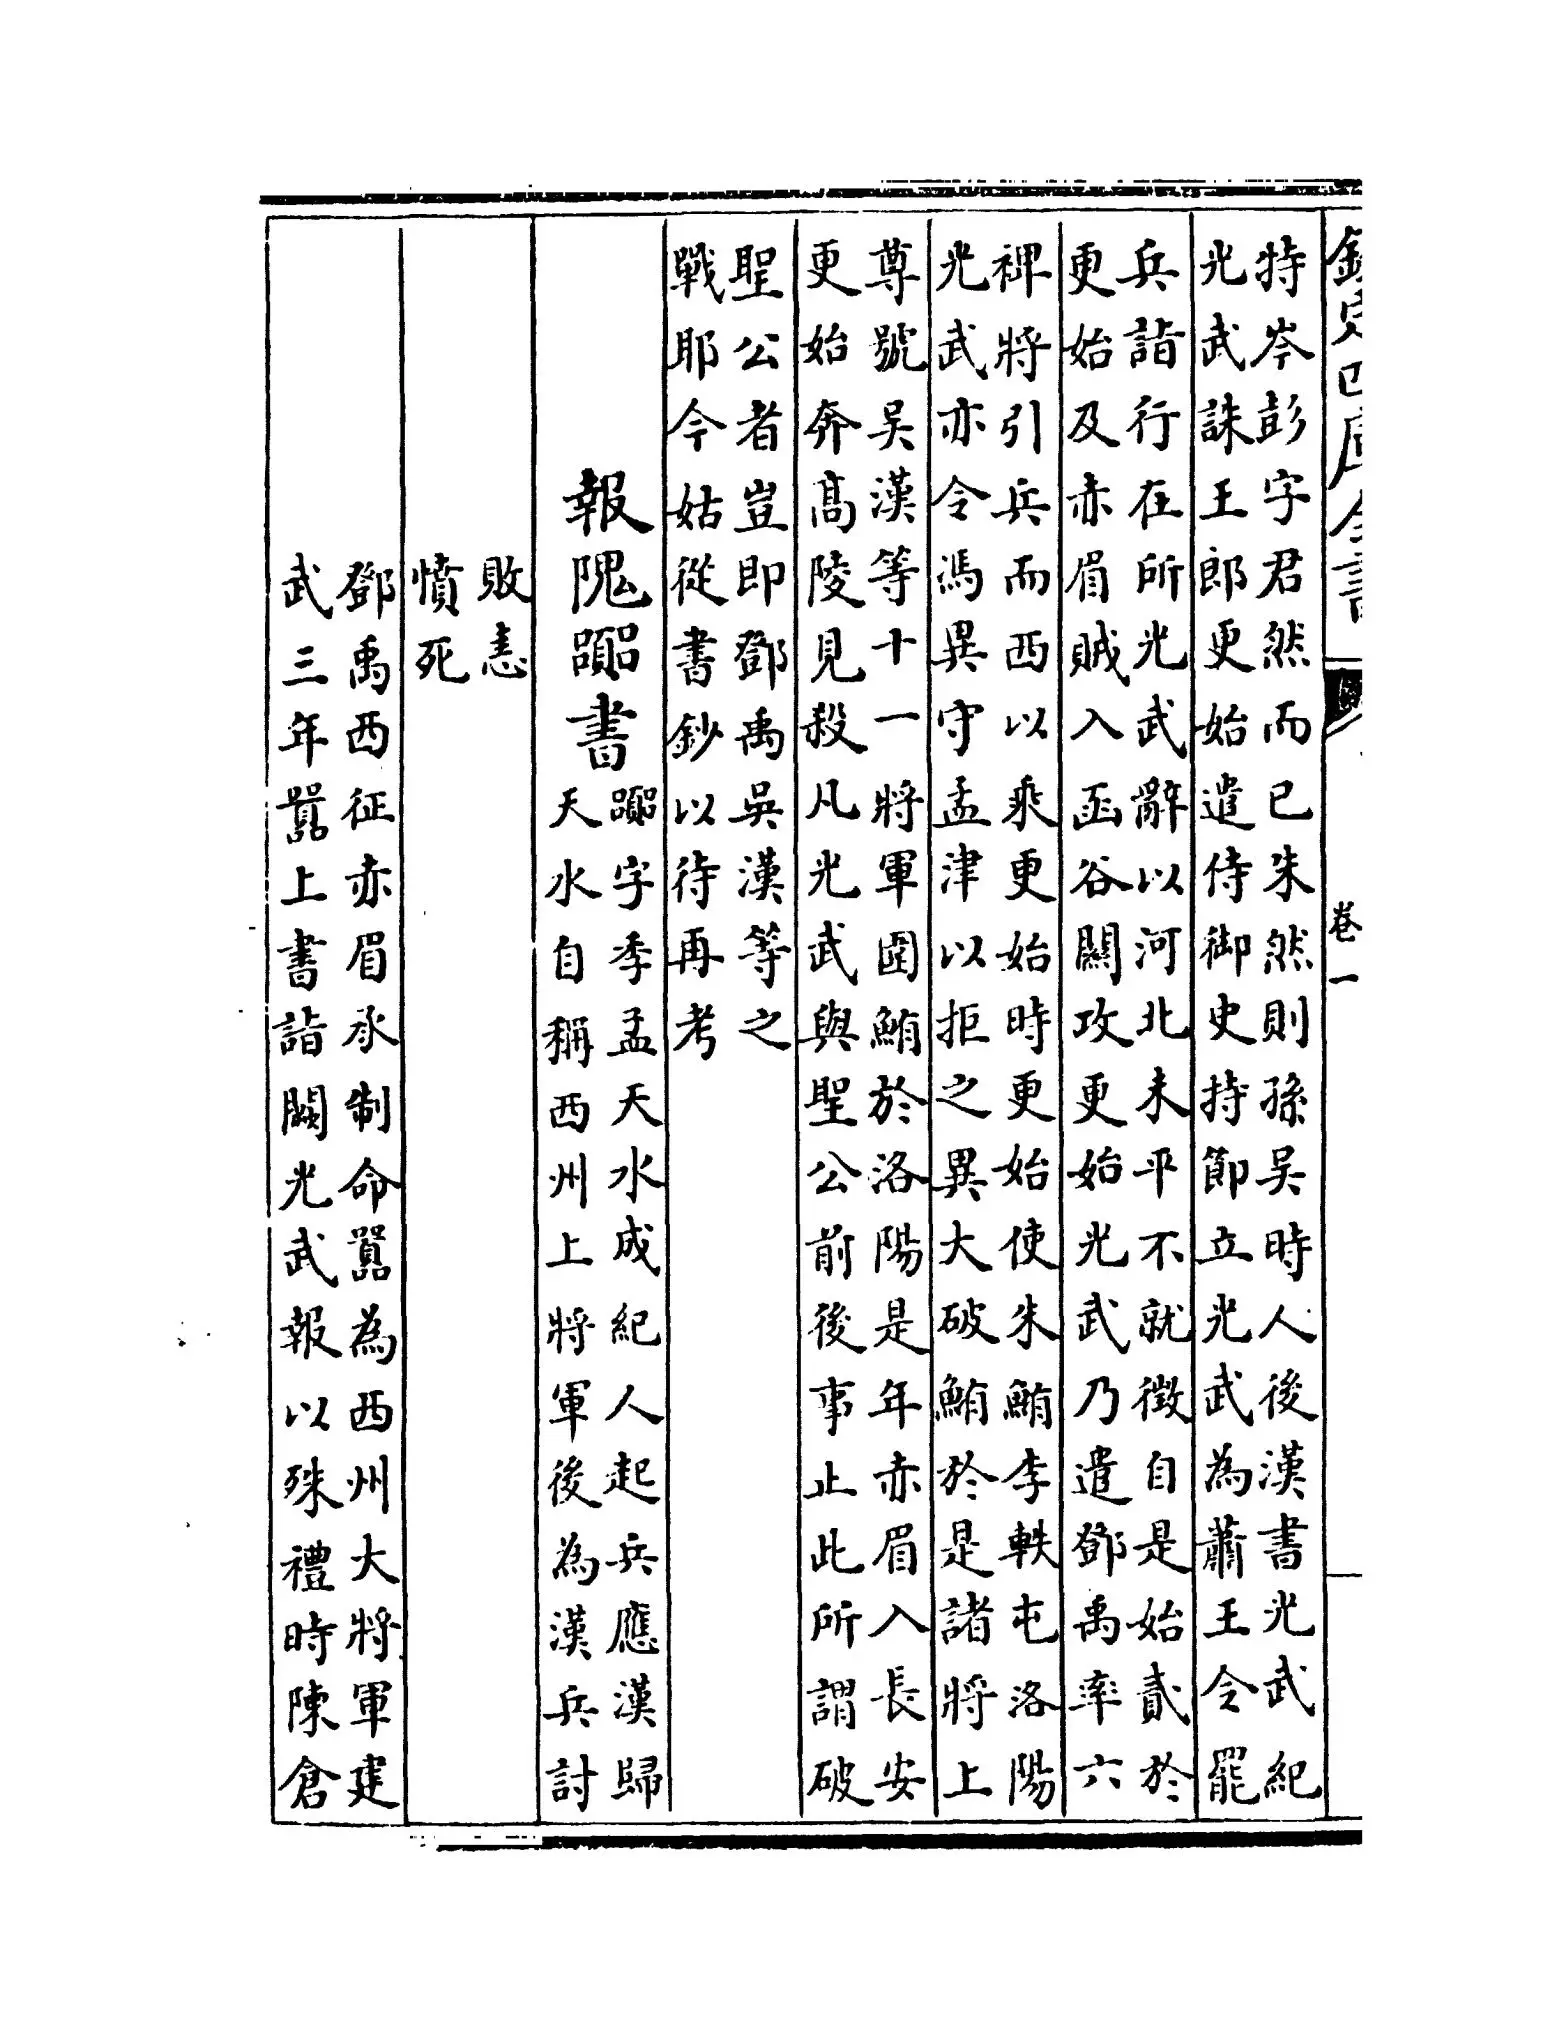 欽定四庫全書
卷一
特岑彭字君然而已朱然則孫吴時人後漢書光武紀
光武誅王郎更始遣侍御史持節立光武為蕭王令罷
兵詣行在所光武辭以河北未平不就徵自是始貳於
更始及赤眉賊入函谷關攻更始光武乃遣鄧禹率六
裨將引兵而西以乘更始時更始使朱鮪李軼屯洛陽
光武亦令馮異守孟津以拒之異大破鮪於是諸將上
尊號吳漢等十一將軍圍鮪於洛陽是年赤眉入長安
更始奔高陵見殺凡光武與聖公前後事止此所謂破
聖公者豈即鄧禹吳漢等之
戰耶今姑從書鈔以待再考
報隗囂書
囂字季孟天水成紀人起兵應漢歸
天水自稱西州上將軍後為漢兵討
敗恚
憤死
鄧禹西征赤眉承制命囂為西州大將軍建
武三年囂上書詣闕光武報以殊禮時陳倉